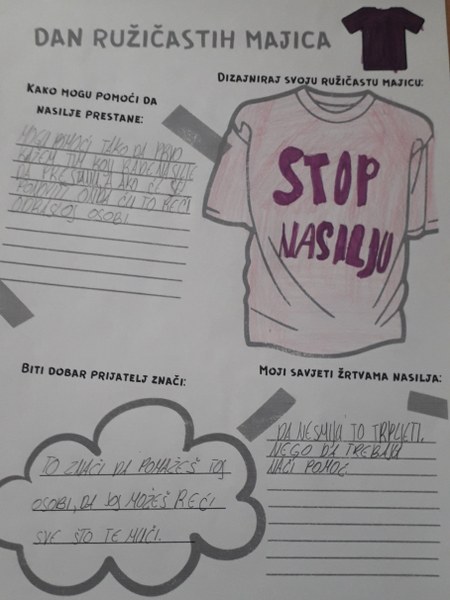 DAN RUŽIČASTIH MAJICA
KAKO MOGU POMOĆI DA
NASILJE PRESTANE:
MOGU POMOĆI TAKO DA PRVO
KAŽEM TIM KOJI RADE NASILJE
DA PRESTANU, A AKO ĆE SE
PONOVIT ONDA ĆU TO REĆI
ODRASLOJ OSOBI.
DIZAJNIRAJ SVOJU RUŽIČASTU MAJICU:
STOP
NASILJU
BITI DOBAR PRIJATELJ ZNAČI:
TO ZNAČI DA POMAŽEŠ TOJ
OSOBI, DA JOJ MOŽEŠ REĆI
SVE ŠTO TE MUČI.
MOJI SAVJETI ŽRTVAMA NASILJA:
DA NESMIJU TO TRPLJETI.
NEGO DA TREBAJU
NAĆI POMOĆ.